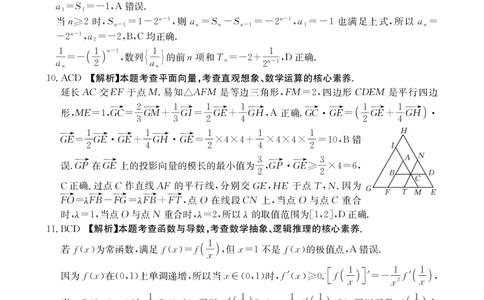 a₁=S₁=-1,A 错误.
当 n≥2 时,Sₙ₋₁=1-2ⁿ⁻¹,则 aₙ=Sₙ-Sₙ₋₁=-2ⁿ⁻¹,a₁=-1 也满足上式,所以 aₙ=
-2ⁿ⁻¹,a₂=-2,B,C 均正确.
1/aₙ=-(1/2)ⁿ⁻¹,数列{1/aₙ}的前 n 项和 Tₙ=-2+1/2ⁿ⁻¹,D 正确.
10.ACD 【解析】本题考查平面向量,考查直观想象、数学运算的核心素养.
延长 AC 交 EF 于点 M.易知△AFM 是等边三角形,FM=2,四边形 CDEM 是平行四边
形,ME=1,GC=2/3GM+1/3GI=1/2GE+1/4GH,A 正确.GC·GE=(1/2GE+1/4GH)·
GE=1/2GE·GE+1/4GH·GE=1/2×4×4+1/4×4×4×1/2=10,B 错
误.GP在GE上的投影向量的模长的最小值为3/2,GP·GE≥3/2×4=6,
C 正确.过点 C 作直线 AF 的平行线,分别交 GE,HE 于点 T,N.因为
FO=λFB-FG=λFB+FT,点 O 在线段 CN 上,当点 O 与点 C 重合
时,λ=1,当点 O 与点 N 重合时,λ=2,所以 λ 的取值范围为[1,2],D 正确.
H
I
A
N
B
D
C
G
F
T
M
E
11.BCD 【解析】本题考查函数与导数,考查数学抽象、逻辑推理的核心素养.
若 f(x)为常函数,满足 f(x)=f(1/x),但 x=1 不是 f(x)的极值点,A 错误.
因为 f(x)在(0,1)上单调递增,所以当 x∈(0,1)时,f′(x)≥0.[f(1/x)]′=-1/x²f′(1/x),